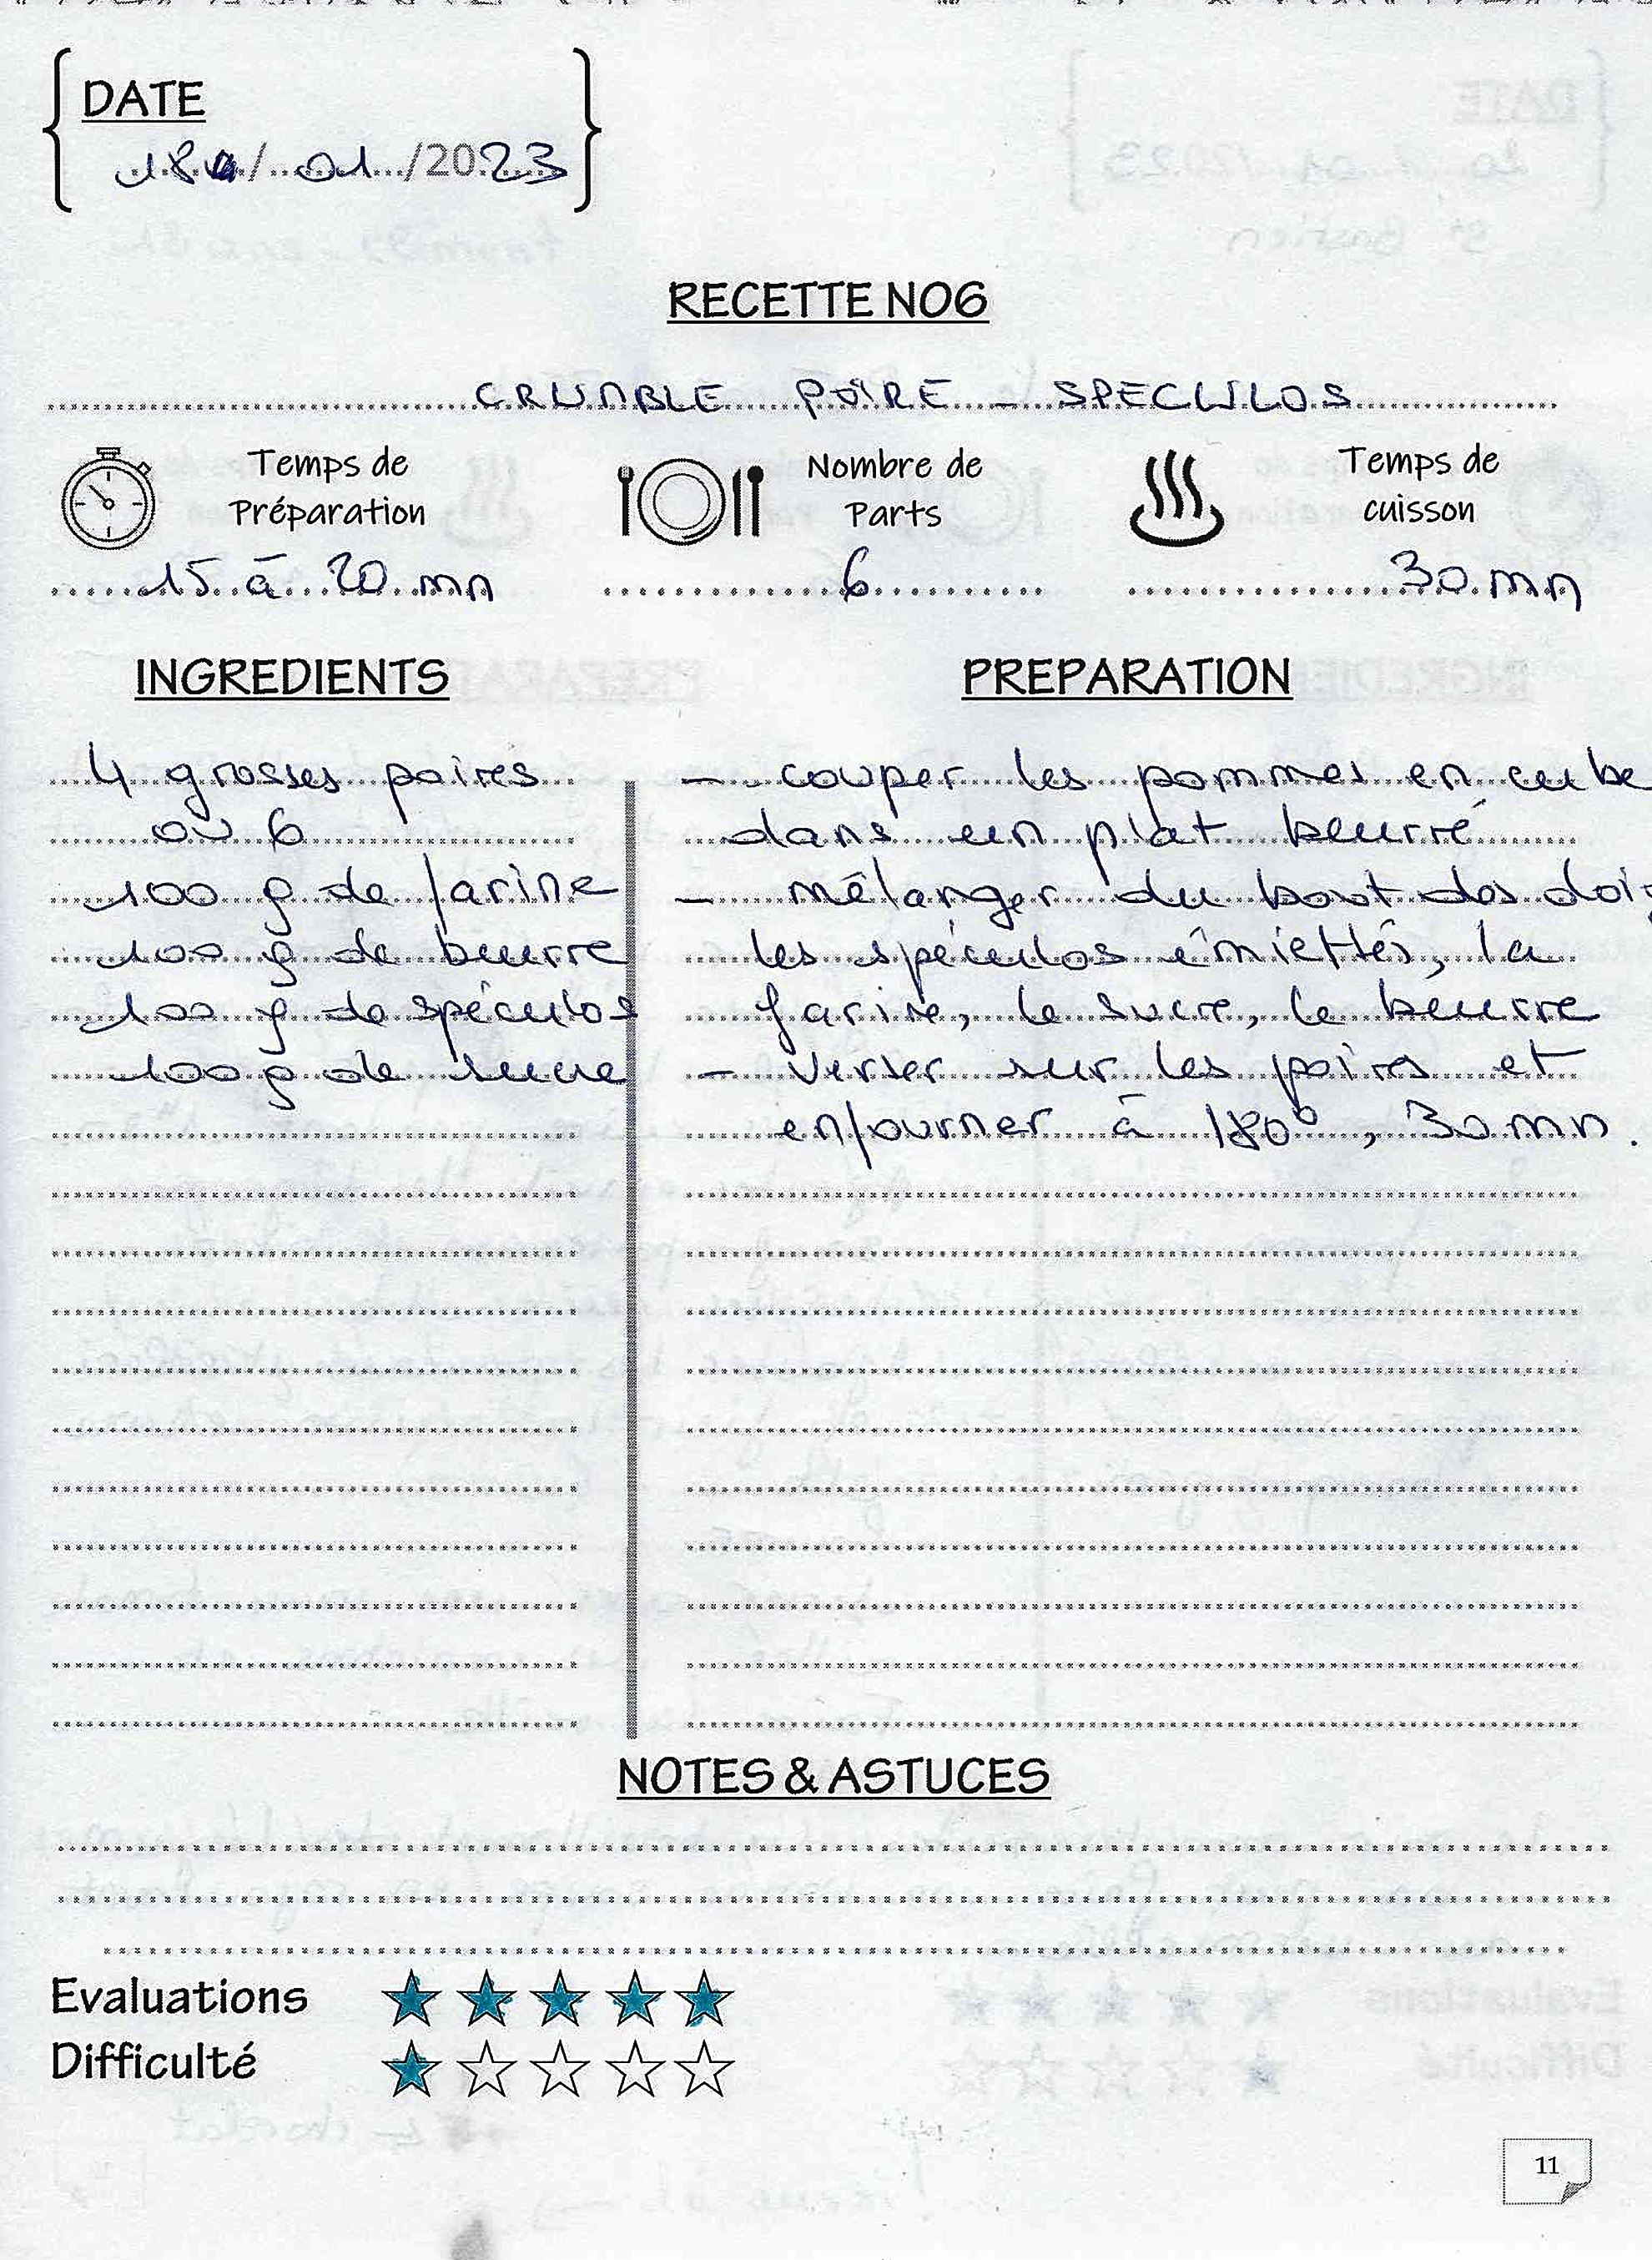 DATE
18/01/2023
RECETTE NO6
CRUMBLE POIRE - SPECULOS
Temps de Préparation
15 à 20 mn
Nombre de Parts
6
Temps de cuisson
30 mn
INGREDIENTS
4 grosses poires
ou 6
100 g de farine
100 g de beurre
100 g de spéculos
100 g de sucre
PREPARATION
- couper les pommes en cube
dans un plat beurré
- mélanger du bout des doig
les spéculos émiettés, la
farine, le sucre, le beurre
- verser sur les poires et
enfourner à 180°, 30 mn.
NOTES & ASTUCES
Evaluations
Difficulté
11